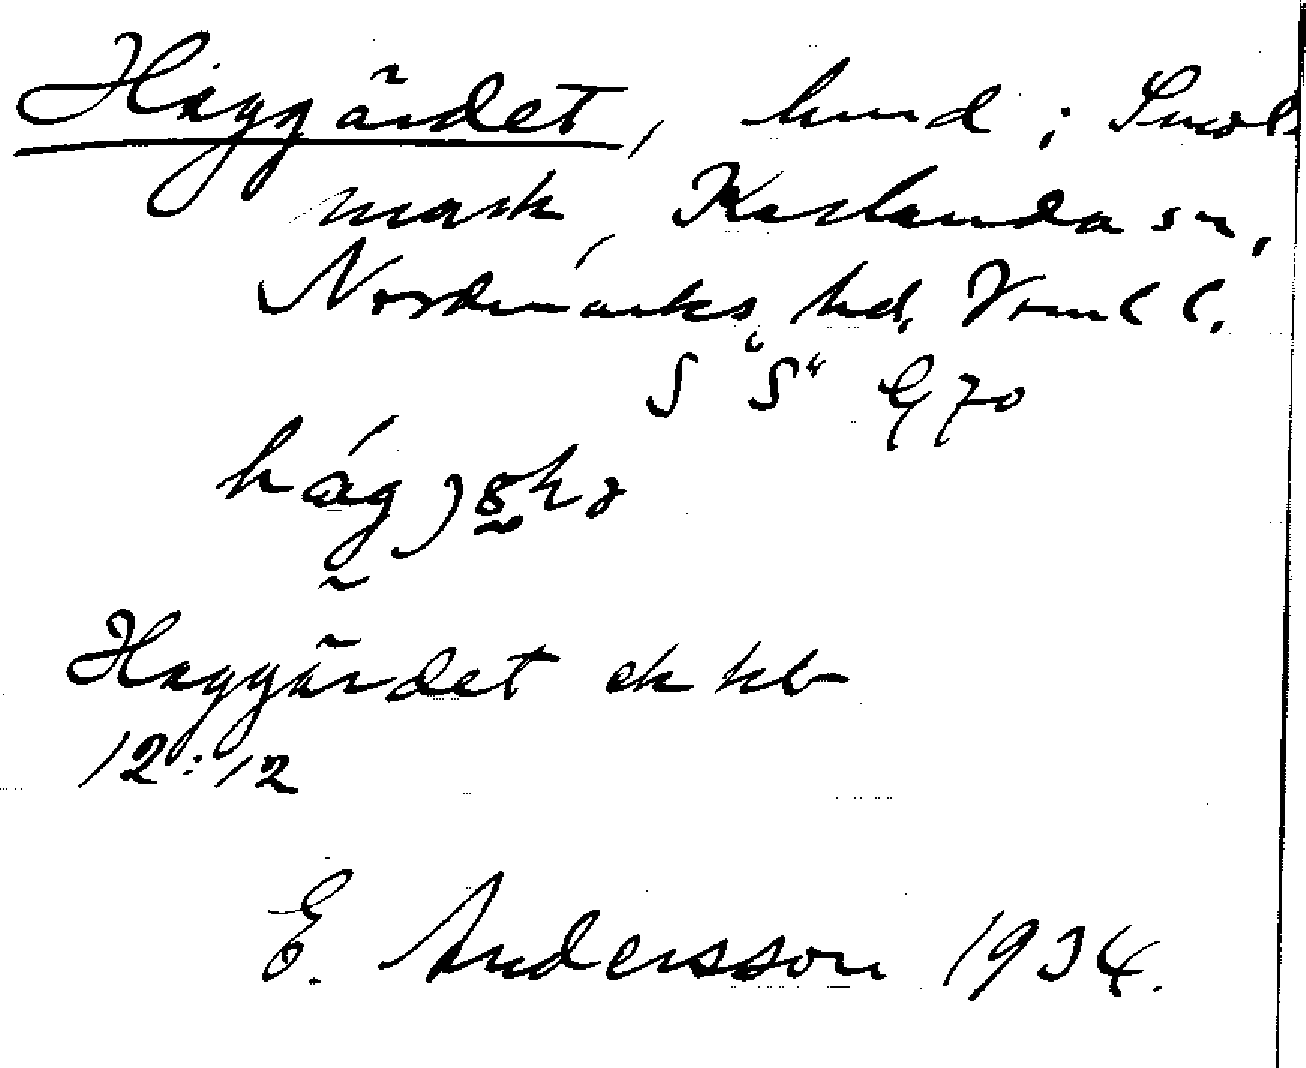 Haggärdet, hmd i Smol-
mark, Karlanda sn,
Nordmarks hd, Vrml l.
S "S" G 70
Haggärdet ek kb
12:12
E. Andersson 1934.